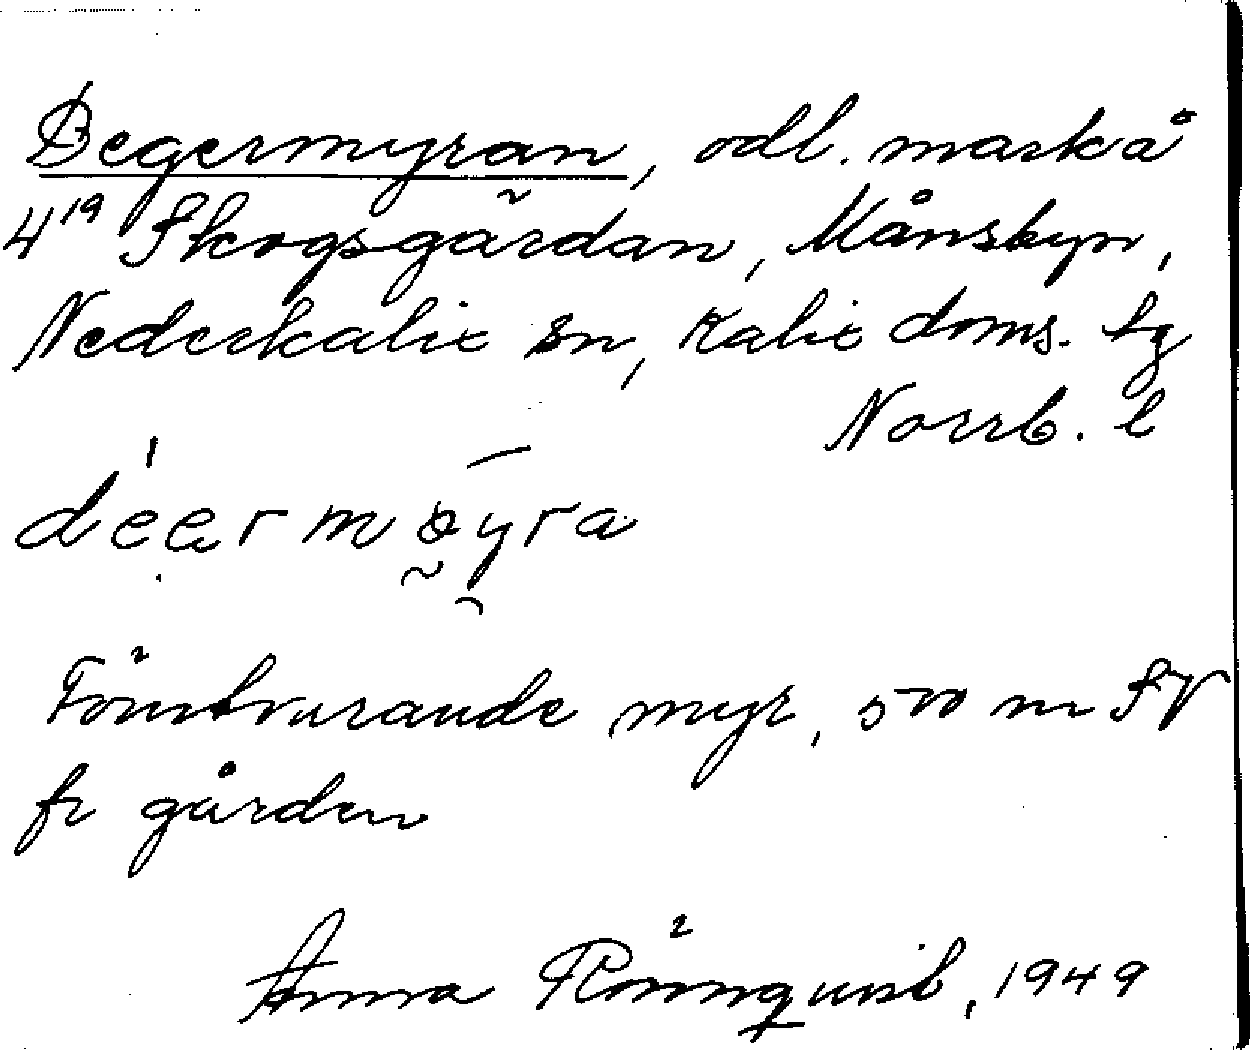 Degermyran, odl. mark å
4¹⁹ Skogsgärdan, Månsbyn,
Nederkalix sn, Kalix doms. lg
Norrb. l
Försvarande myr, 500 m SV
fr gården
Anna Rönnquist, 1949